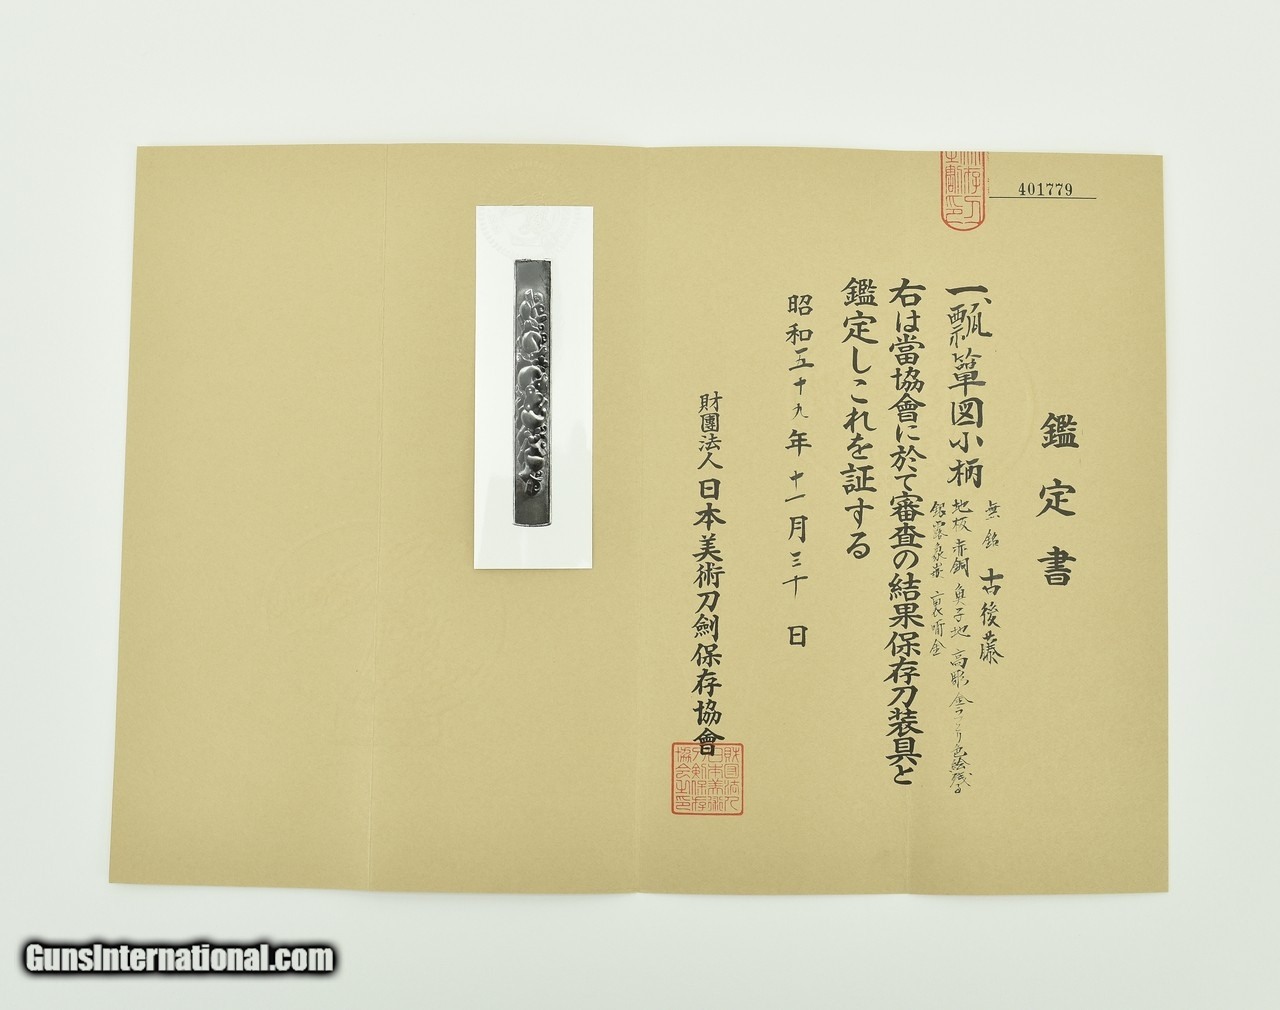 401779
鑑定書
一、瓢簞図小柄
無銘 古後藤
地板赤銅 魚子地 高彫 金うっとり色絵
裏哺金
右は當協會に於て審査の結果保存刀装具と
鑑定しこれを証する
昭和五十九年十一月三十日
財團法人日本美術刀劍保存協會
財団法人日本美術刀剣保存協会之印
GunsInternational.com